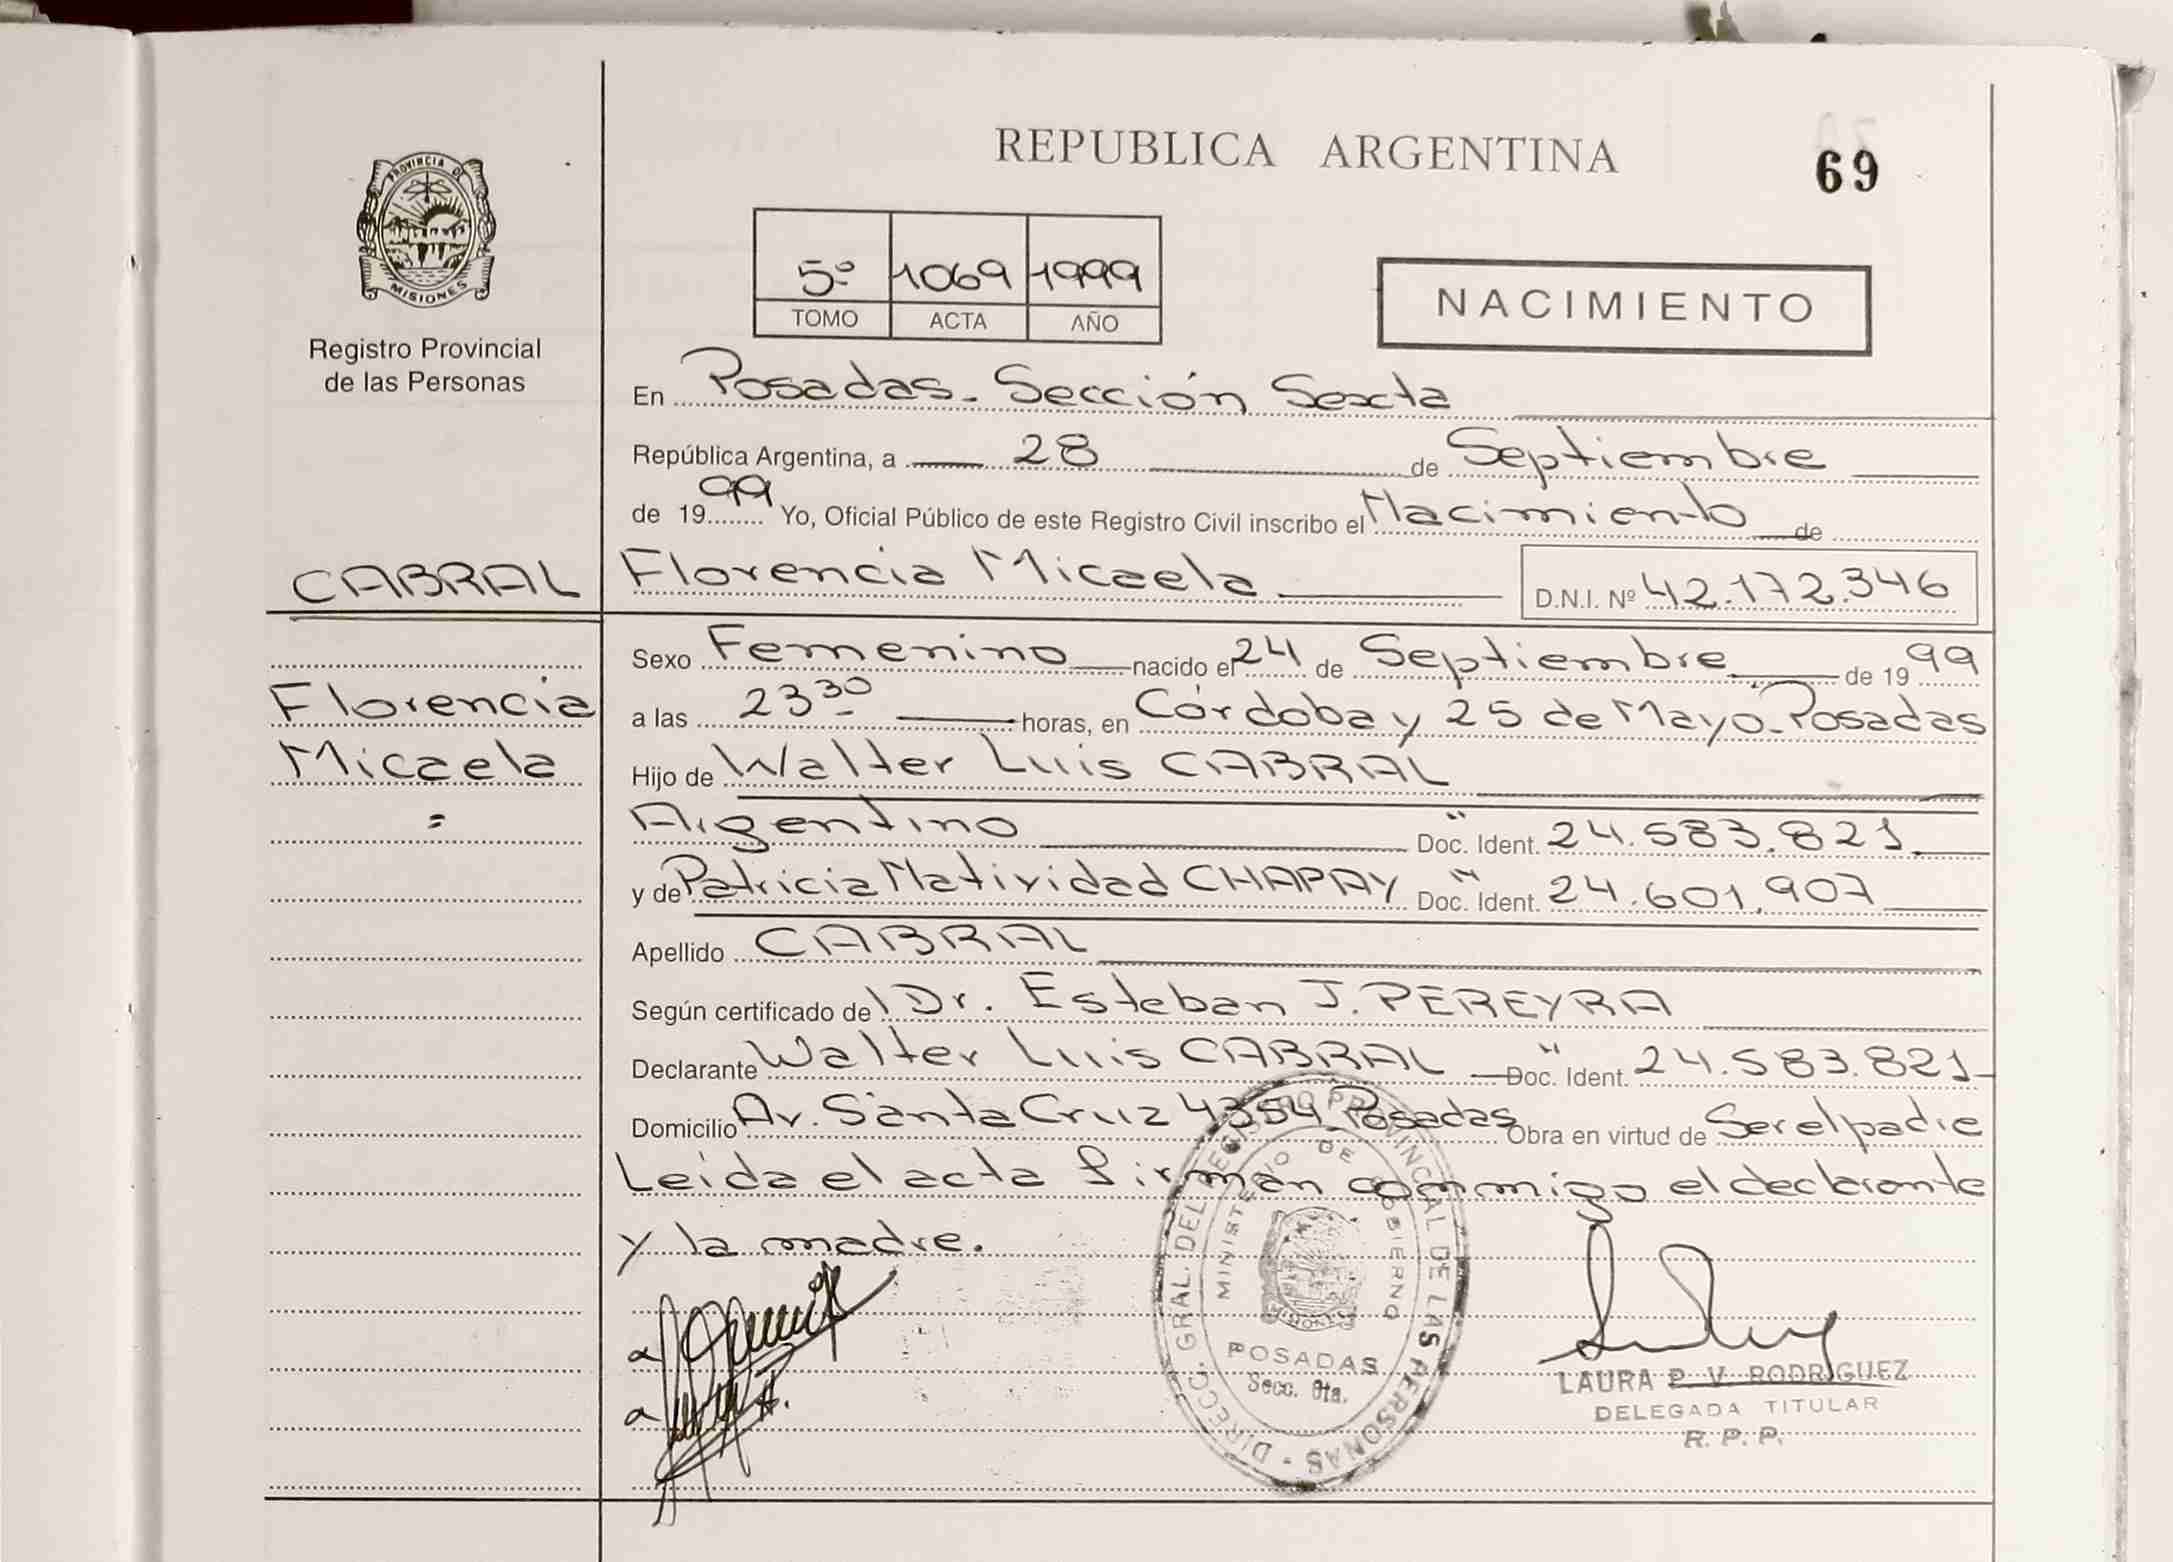 REPUBLICA ARGENTINA
69
PROVINCIA DE
MISIONES
Registro Provincial
de las Personas
5º 1069 1999
TOMO ACTA AÑO
NACIMIENTO
En Posadas. Sección Sexta
República Argentina, a 28 de Septiembre
de 1999 Yo, Oficial Público de este Registro Civil inscribo el Nacimiento de
CABRAL Florencia Micaela D.N.I. Nº 42.172.346
Sexo Femenino nacido el 24 de Septiembre de 1999
Florencia
a las 23 30 horas, en Córdoba y 25 de Mayo-Posadas
Micaela
Hijo de Walter Luis CABRAL
=
Argentino Doc. Ident. " 24.583.821
y de Patricia Natividad CHAPAY Doc. Ident. " 24.601.907
Apellido CABRAL
Según certificado de Dr. Esteban J. PEREYRA
Declarante Walter Luis CABRAL Doc. Ident. " 24.583.821
Domicilio Av. Santa Cruz 4354 Posadas Obra en virtud de Ser el padre
Leída el acta firman conmigo el declarante
y la madre.
DIRECC. GRAL. DEL REGISTRO PROVINCIAL DE LAS PERSONAS
MINISTERIO DE GOBIERNO
MISIONES
POSADAS
Secc. 6ta.
LAURA P. V. RODRIGUEZ
DELEGADA TITULAR
R. P. P.